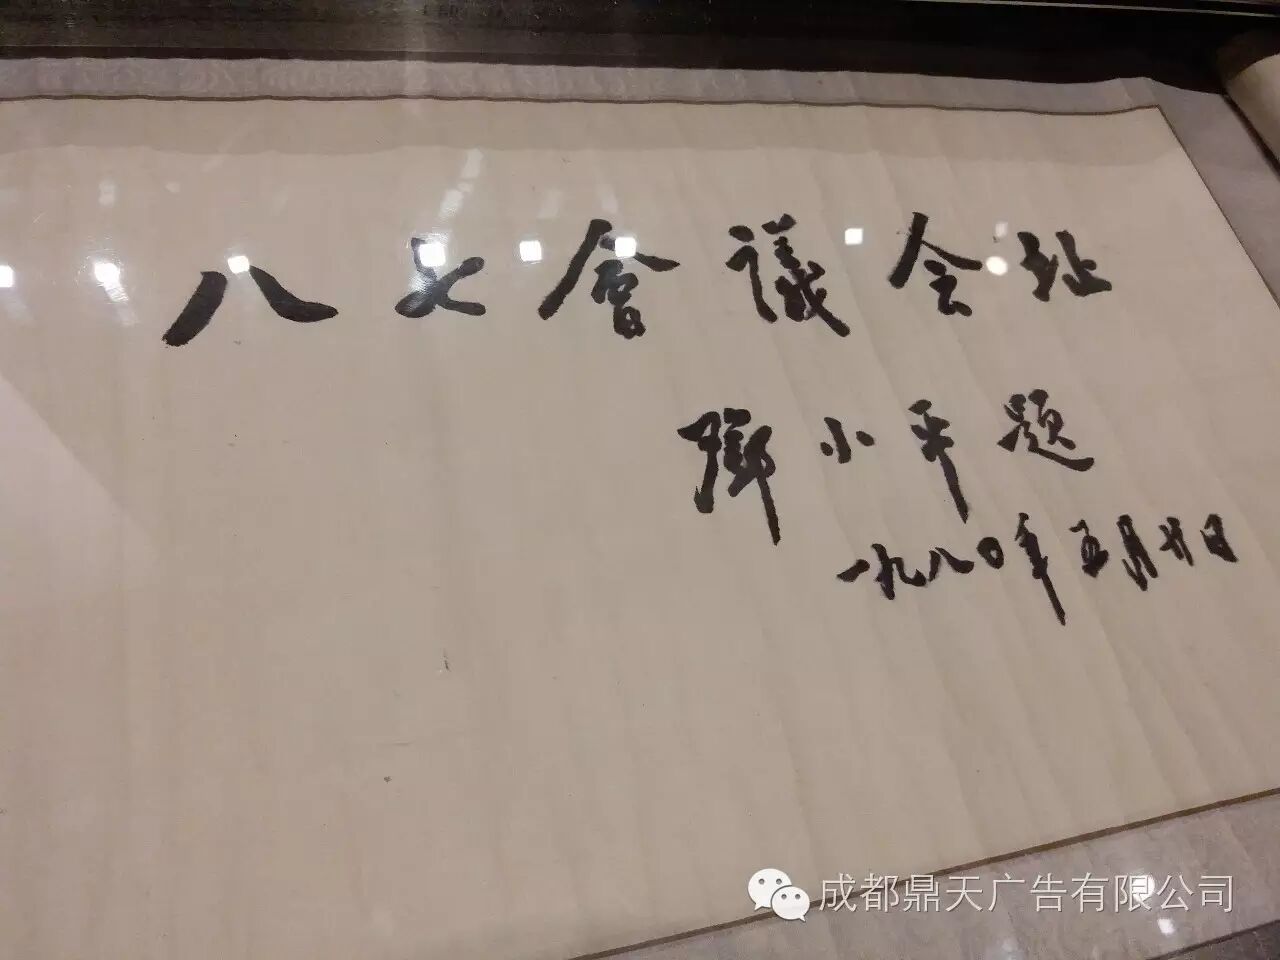 八七會議会址
鄧小平題
一九八〇年五月廿日
成都鼎天广告有限公司